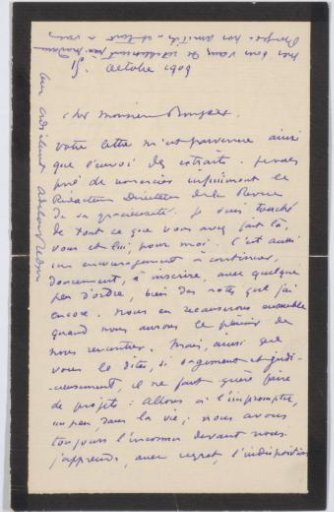 15. Octobre 1909
Cher Monsieur
votre lettre m'est parvenue ainsi
que l'envoi des extraits. Je vous
prie de remercier infiniment le
Rédacteur Directeur de la Revue
de sa gracieuseté. Je suis touché
de tout ce que vous avez fait là,
vous et lui, pour moi. C'est aussi
un encouragement à continuer,
doucement, à inscrire, avec quelque
peu d'ordre, bien des notes que j'ai
encore. Nous en recauserons ensemble
quand nous aurons le plaisir de
nous rencontrer. Mais, ainsi que
vous le dites, si sagement et judi-
cieusement, il ne faut guère faire
de projets : allons à l'impromptu,
un peu dans la vie ; nous avons
toujours l'inconnu devant nous.
J'apprends, avec regret, l'indisposition